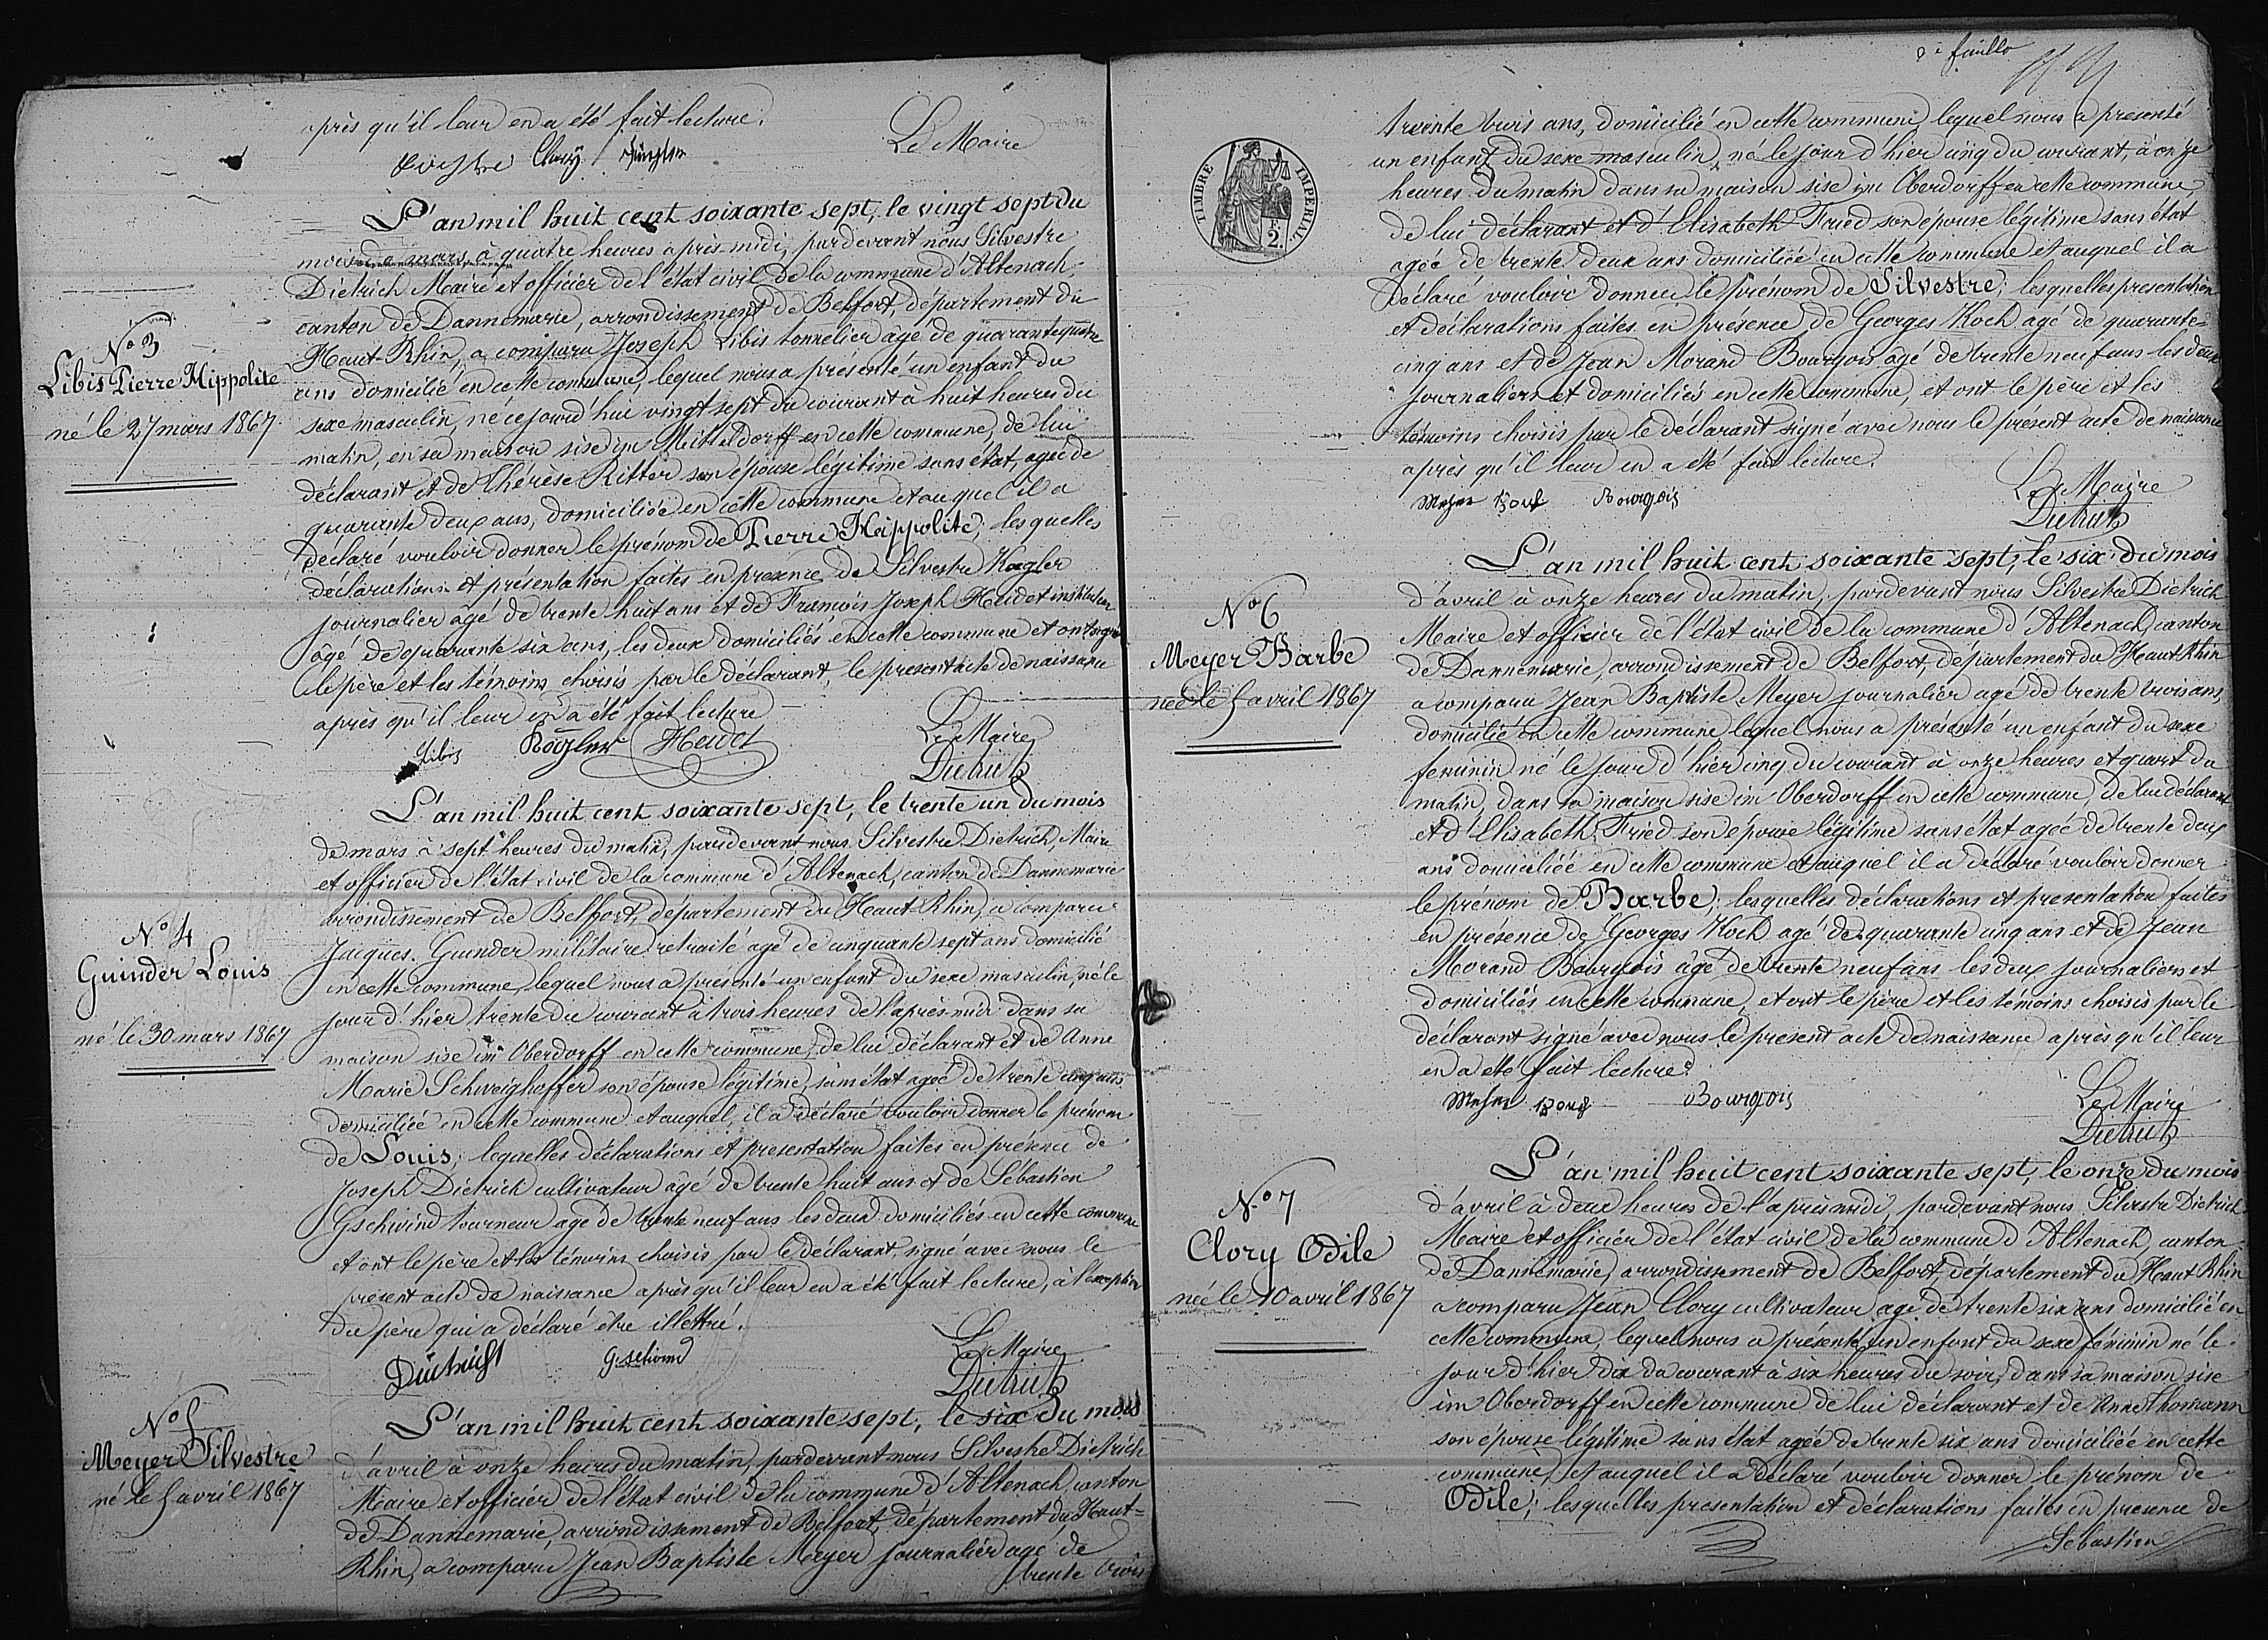 après qu'il leur en a été fait lecture.
Le Maire
Clory
L'an mil huit cent soixante sept, le vingt sept du
mois de mars, à quatre heures après midi, pardevant nous Silvestre
Dietrich Maire et officier de l'état civil de la commune d'Altenach,
canton de Dannemarie, arrondissement de Belfort, département du
Haut-Rhin, a comparu Joseph Libis tonnelier agé de quarante quatre
ans domicilié en cette commune, lequel nous a présenté un enfant du
sexe masculin, né cejourd'hui vingt sept du courant à huit heures du
matin, en sa maison sise im Mitteldorff en cette commune, de lui
déclarant et de Thérèse Ritter son épouse légitime sans état, agée de
quarante deux ans, domiciliée en cette commune et auquel il a
déclaré vouloir donner le prénom de Pierre Hippolite, les quelles
déclarations et présentation faites en presence de Silvestre Kægler
journalier agé de trente huit ans et de François Joseph Heidet instituteur
âgé de quarante six ans, les deux domiciliés en cette commune et ont signé
le père et les témoins choisis par le déclarant, le present acte de naissance
après qu'il leur en a été fait lecture
Le Maire
Libis Kögler Heidet
Dietrich
No 3
Libis Pierre Hippolite
né le 27 mars 1867
L'an mil huit cent soixante sept, le trente un du mois
de mars à sept heures du matin, pardevant nous Silvestre Dietrich, Maire
et officier de l'état civil de la commune d'Altenach, canton de Dannemarie
arrondissement de Belfort, département du Haut-Rhin, a comparu
Jacques Guinder militaire retraité agé de cinquante sept ans domicilié
en cette commune, lequel nous a présenté un enfant du sexe masculin, né le
jour d'hier trente du courant à trois heures de l'après-midi dans sa
maison sise im Oberdorff en cette commune, de lui déclarant et de Anne
Marie Schweighoffer son épouse légitime, sans état agée de trente cinq ans
domiciliée en cette commune et auquel, il a déclaré vouloir donner le prénom
de Louis; lequelles déclarations et presentation faites en présence de
Joseph Dietrich cultivateur âgé de trente huit ans et de Sébastien
Gschwind tourneur agé de trente neuf ans les deux domiciliés en cette commune
et ont le père et les témoins choisis par le déclarant signé avec nous le
présent acte de naissance après qu'il leur en a été fait lecture, à l'exception
du père qui a déclaré être illettré.
Le Maire
Dietrich Gschwind
Dietrich
No 4
Guinder Louis
né le 30 mars 1867
L'an mil huit cent soixante sept, le six du mois
d'avril à onze heures du matin, pardevant nous Silvestre Dietrich
Maire et officier de l'état civil de la commune d'Altenach, canton
de Dannemarie, arrondissement de Belfort, département du Haut-
Rhin, a comparu Jean Baptiste Meyer journalier agé de
trente trois
No 5
Meyer Silvestre
né le 5 avril 1867
2e feuille
TIMBRE IMPERIAL
2.
trente trois ans, domicilié en cette commune lequel nous a présenté
un enfant du sexe masculin, né le jour d'hier cinq du courant, à onze
heures du matin dans sa maison sise im Oberdorff en cette commune
de lui déclarant et d'Elisabeth Fried son épouse légitime sans état
agée de trente deux ans domiciliée en cette commune et auquel il a
déclaré vouloir donner le prénom de Silvestre; lesquelles presentation
et déclarations faites en présence de Georges Koch agé de quarante-
cinq ans et de Jean Morand Bourgois agé de trente neuf ans les deux
journaliers et domiciliés en cette commune, et ont le père et les
témoins choisis par le déclarant signé avec nous le présent acte de naissance
après qu'il leur en a été fait lecture.
Le Maire
Meyer Koch Bourgois
Dietrich
L'an mil huit cent soixante sept, le six du mois
d'avril à onze heures du matin, pardevant nous Silvestre Dietrich
Maire et officier de l'état civil de la commune d'Altenach, canton
de Dannemarie, arrondissement de Belfort, département du Haut Rhin
a comparu Jean Baptiste Meyer journalier agé de trente trois ans,
domicilié en cette commune lequel nous a présenté un enfant du sexe
feminin né le jour d'hier cinq du courant à onze heures et quart du
matin, dans sa maison sise im Oberdorff en cette commune, de lui déclarant
et d'Elisabeth Fried son épouse légitime sans état agée de trente deux
ans domiciliée en cette commune et auquel il a déclaré vouloir donner
le prénom de Barbe; lesquelles déclarations et presentation faites
en présence de Georges Koch agé de quarante cinq ans et de Jean
Morand Bourgois âgé de trente neuf ans les deux journaliers et
domiciliés en cette commune, et ont le père et les témoins choisis par le
déclarant signé avec nous le present acte de naissance après qu'il leur
en a été fait lecture.
Le Maire
Meyer Koch Bourgois
Dietrich
No 6
Meyer Barbe
née le 5 avril 1867
L'an mil huit cent soixante sept, le onze du mois
d'avril à deux heures de l'après midi, pardevant nous Silvestre Dietrich
Maire et officier de l'état civil de la commune d'Altenach, canton
de Dannemarie, arrondissement de Belfort, département du Haut Rhin
a comparu Jean Clory cultivateur agé de trente six ans domicilié en
cette commune, lequel nous a présenté un enfant du sexe féminin né le
jour d'hier dix du courant à six heures du soir, dans sa maison sise
im Oberdorff en cette commune de lui déclarant et de Anne Thomann
son épouse légitime sans état agée de trente six ans domiciliée en cette
commune, et auquel il a déclaré vouloir donner le prénom de
Odile; lesquelles presentation et déclarations faites en presence de
Sébastien
No 7
Clory Odile
née le 10 avril 1867